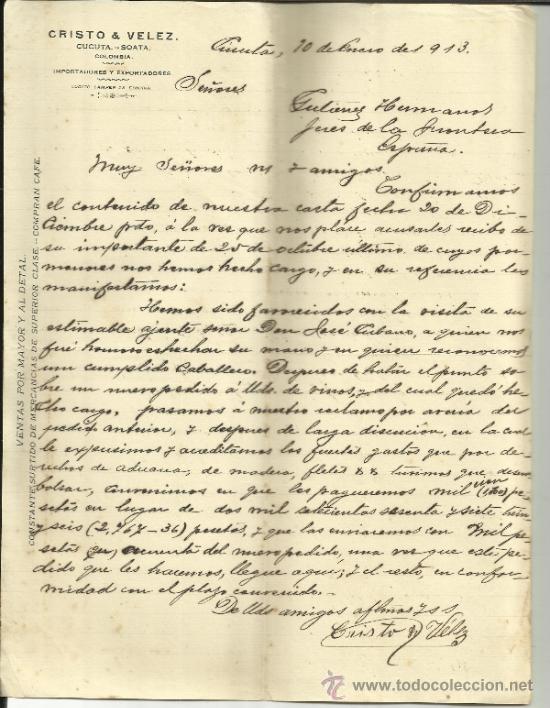 CRISTO & VELEZ.
CUCUTA. - SOATA.
COLOMBIA.
IMPORTADORES Y EXPORTADORES
Cúcuta, 10 de Enero de 1913.
Señores
Gutiérrez Hermanos
Jerés de la Frontera
España.
Muy Señores ns y amigos.
Confirmamos
el contenido de nuestra carta fecha 20 de Di-
ciembre pdo, á la vez que nos place acusarles recibo de
su importante de 25 de octubre último, de cuyos por-
menores nos hemos hecho cargo, y en su referencia les
manifestamos:
Hemos sido favorecidos con la visita de su
estimable ajente señor Don José Cubano, a quien nos
fué honroso estrechar su mano y en quien reconocemos
un cumplido Caballero. Despues de tratar el punto so-
bre un nuevo pedido á Uds. de vinos, y del cual quedó he-
cho cargo, pasamos á nuestro reclamo por avería del
pedido anterior, y despues de larga discucion, en la cual
le expusimos y acreditamos los fuertes gastos que por de-
rechos de aduana, de madera, fletes && tuvimos que desem-
bolsar, convenimos en que les pagaremos mil (1,000) pe-
setas en lugar de dos mil setecientos sesenta y siete
seis (2,767-36) pesetas, y que las enviaremos con mil pe-
setas en cuenta del nuevo pedido, una vez que este pe-
dido que les hacemos, llegue aquí; y el resto, en confor-
midad con el plazo convenido.
De Uds amigos afmos y s s
Cristo & Vélez
VENTAS POR MAYOR Y AL DETAL.
CONSTANTE SURTIDO DE MERCANCIAS DE SUPERIOR CLASE. - COMPRAN CAFE.
todocoleccion
www.todocoleccion.net